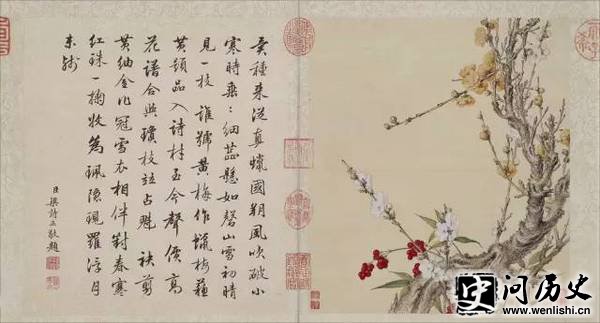 種来從真蠟國朔風吹破小
寒時垂垂細蕊懸如磬山雪初晴
見一枝誰號黃梅作蠟梅蘓
黃題品入詩材至今聲價高
花譜合與瓊枝並占魁袂剪
黃紬金作冠雪衣相伴對春寒
紅珠一掬收為珮隱現羅浮月
未殘
臣梁詩正敬題
史问历史
www.wenlishi.cn